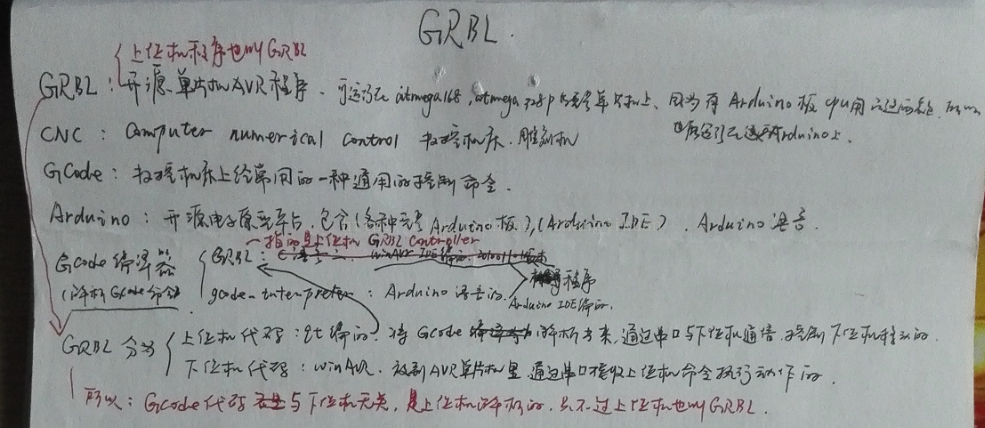 GRBL.
上位机程序也叫GRBL
GRBL: 开源单片机AVR程序. 可运行在atmega168, atmega328p的单片机上、因为有Arduino板cpu用
运行在Arduino上.
CNC: Computer numerical control 数控机床. 雕刻机
GCode: 数控机床上经常用的一种通用的控制命令.
Arduino: 开源电子原型平台, 包含(各种型号Arduino板), (Arduino IDE). Arduino语言.
指的是上位机GRBL Controller
Gcode编译器 GRBL:
(解析Gcode命令) gcode-interpreter: Arduino语言的. Arduino IDE编的. 程序
GRBL分为 上位机代码: Qt编的. 将Gcode解析出来, 通过串口与下位机通信. 控制下位机移动的.
下位机代码: winAVR. 放到AVR单片机里, 通过串口接收上位机命令执行动作的.
所以: Gcode代码与下位机无关, 是上位机解析的, 只不过上位机也叫GRBL.